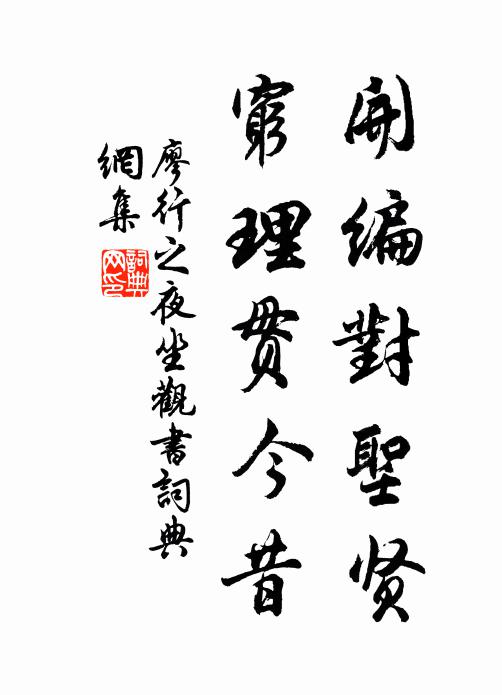 開編對聖贤
窮理贯今昔
廖行之夜坐觀書詞典
網集
詞典
网印